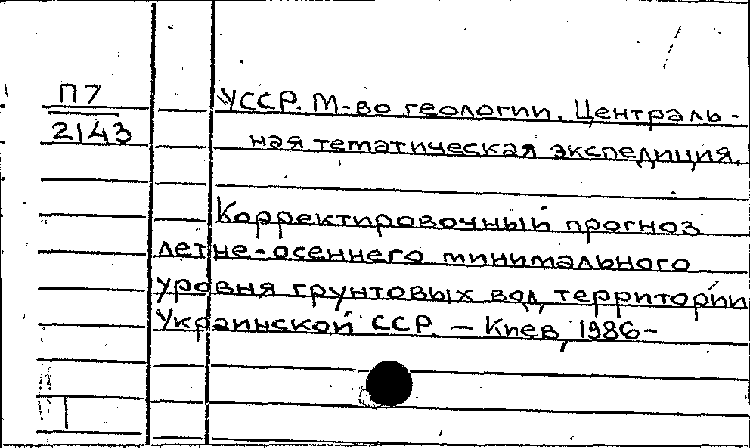 П7
2143
УССР. М-во геологии. Централь-
ная тематическая экспедиция.
Корректировочный прогноз
летне-осеннего минимального
уровня грунтовых вод территории
Украинской ССР. – Киев, 1986–